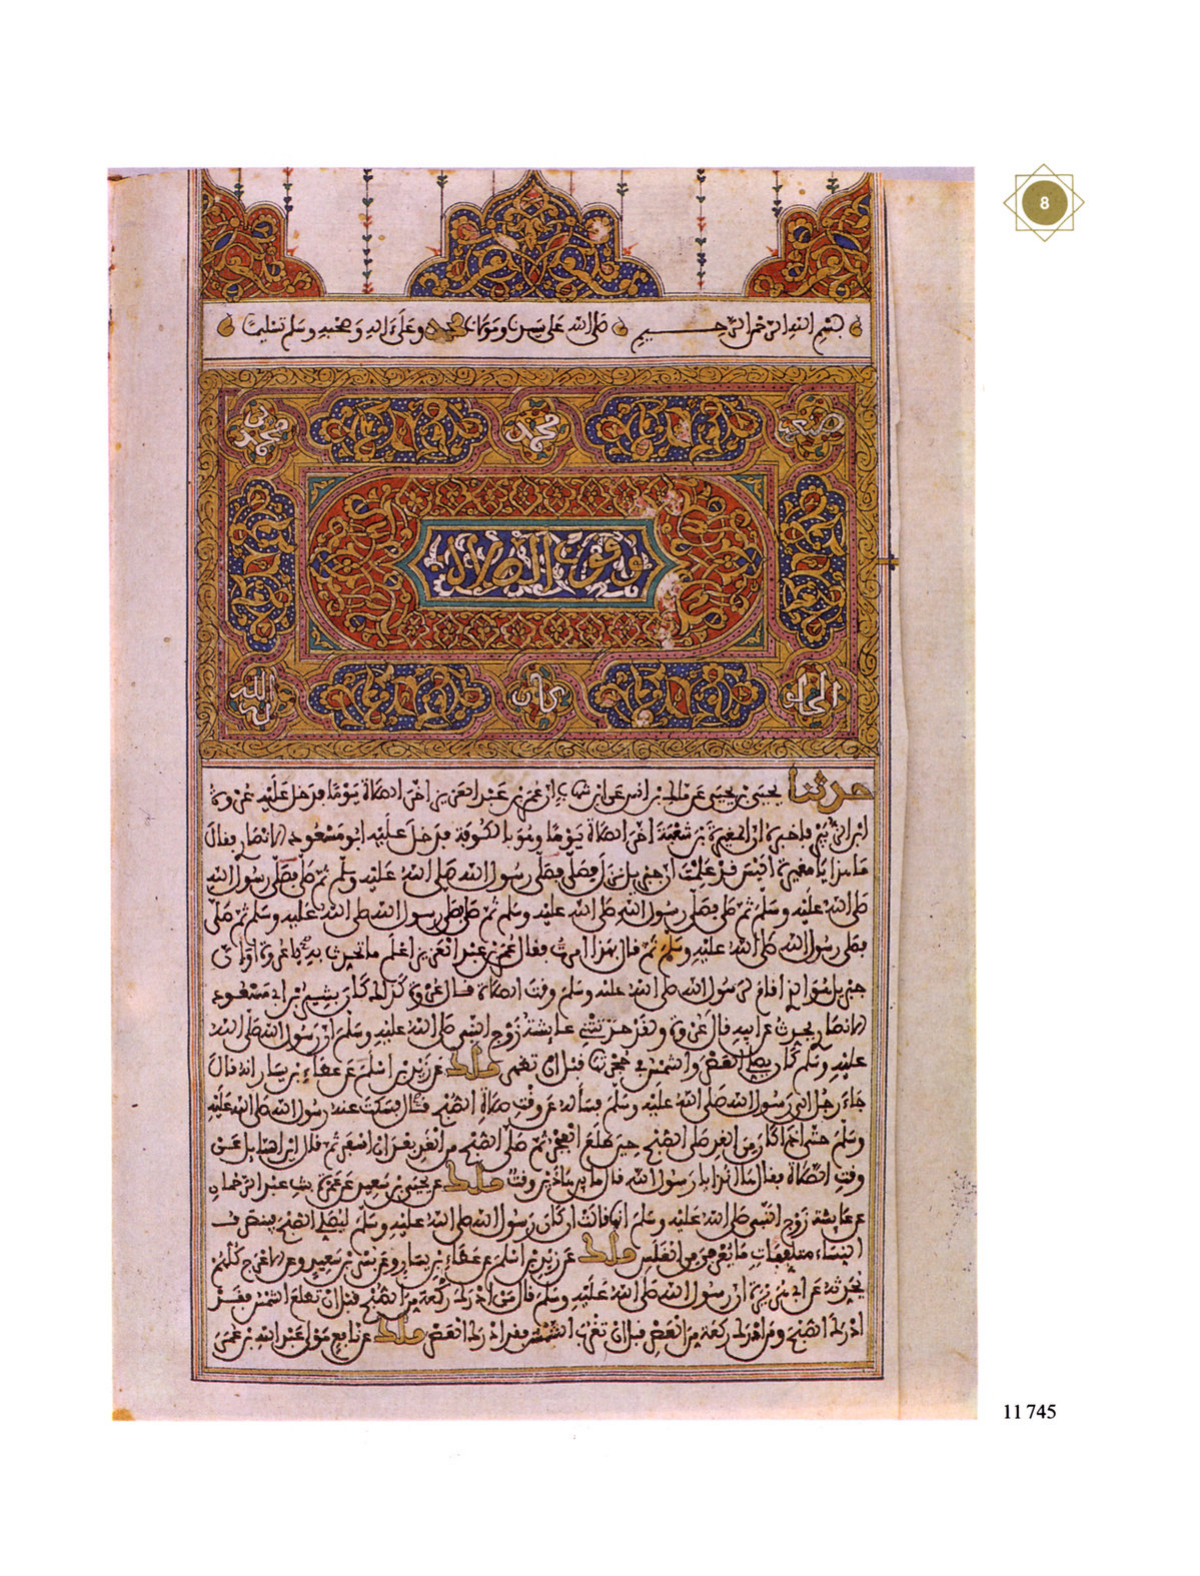 8
بسم الله الرحمن الرحيم صلى الله على سيدنا ومولانا محمد وعلى ءاله وصحبه وسلم تسليما
صنعه محمد محمد بن
وقوت الصلاة
كان الله له
حدثنا يحيى بن يحيى عن مالك بن أنس عن ابن شهاب أن عمر بن عبد العزيز أخر الصلاة يوما فدخل عليه عروة
ابن الزبير فأخبره أن المغيرة بن شعبة أخر الصلاة يوما وهو بالكوفة فدخل عليه أبو مسعود الأنصاري فقال
ما هذا يا مغيرة أليس قد علمت أن جبريل نزل فصلى فصلى رسول الله صلى الله عليه وسلم ثم صلى فصلى رسول الله
صلى الله عليه وسلم ثم صلى فصلى رسول الله صلى الله عليه وسلم ثم صلى فصلى رسول الله صلى الله عليه وسلم ثم صلى
فصلى رسول الله صلى الله عليه وسلم ثم قال بهذا أمرت فقال عمر بن عبد العزيز اعلم ما تحدث به يا عروة أو إن
جبريل هو الذي أقام لرسول الله صلى الله عليه وسلم وقت الصلاة قال عروة كذلك كان بشير بن أبي مسعود
الأنصاري يحدث عن أبيه قال عروة ولقد حدثتني عايشة زوج النبي صلى الله عليه وسلم أن رسول الله صلى الله
عليه وسلم كان يصلي العصر والشمس في حجرتها قبل أن تظهر مالك عن زيد بن أسلم عن عطاء بن يسار أنه قال
جاء رجل إلى رسول الله صلى الله عليه وسلم فسأله عن وقت صلاة الصبح قال فسكت عنه رسول الله صلى الله عليه
وسلم حتى إذا كان من الغد صلى الصبح حين طلع الفجر ثم صلى الصبح من الغد بعد أن أسفر ثم قال أين السائل عن
وقت الصلاة فقال هأنذا يا رسول الله قال ما بين هاذين وقت مالك عن يحيى بن سعيد عن عمرة بنت عبد الرحمان
عن عايشة زوج النبي صلى الله عليه وسلم أنها قالت إن كان رسول الله صلى الله عليه وسلم ليصلي الصبح فينصرف
النساء متلفعات ما يعرفن من الغلس مالك عن زيد بن أسلم عن عطاء بن يسار وعن بسر بن سعيد وعن الأعرج كلهم
يحدثه عن أبي هريرة أن رسول الله صلى الله عليه وسلم قال من أدرك ركعة من الصبح قبل أن تطلع الشمس فقد
أدرك الصبح ومن أدرك ركعة من العصر قبل أن تغرب الشمس فقد أدرك العصر مالك عن نافع مولى عبد الله بن عمر
11 745